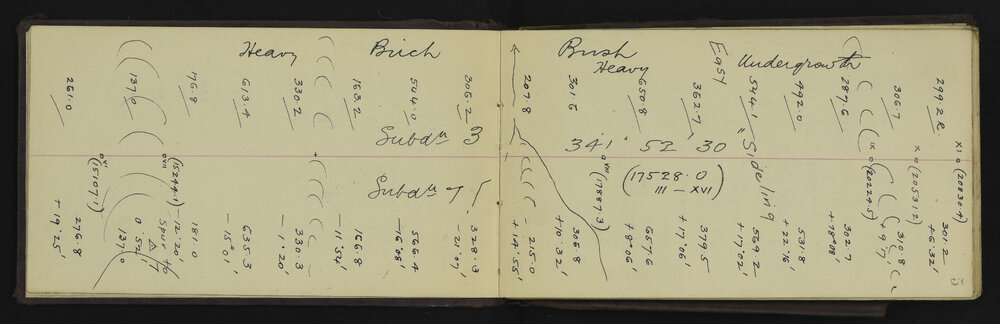 Heavy Birch Bush Undergrowth
Heavy
Easy
Sidelling
261.0
137.0
176.8
613.4
330.2
163.2
544.0
306.2
207.8
301.6
650.8
362.7
544.1
492.0
287.6
306.7
299.2 R.
Subdn 3
341° 52' 30"
Subdn 7
(17528.0)
III – XVI
(15107.1)
(15244.1)
XVIII (17887.3)
IX 0 (20224.5)
X 0 (20531.2)
XI 0 (20830.4)
276.8
+ 19°25'
137.0
0°52'
Spur to △
181.0
– 12°20'
635.3
– 15°01'
330.3
– 1°20'
166.8
– 11°54'
566.4
– 16°08'
328.3
– 21°07'
215.0
+ 14°55'
306.8
+ 10°32'
657.6
+ 8°06'
379.5
+ 17°06'
569.2
+ 17°02'
531.8
+ 22°16'
302.7
+ 18°08'
310.8
+ 9°17'
301.2
+ 6°32'